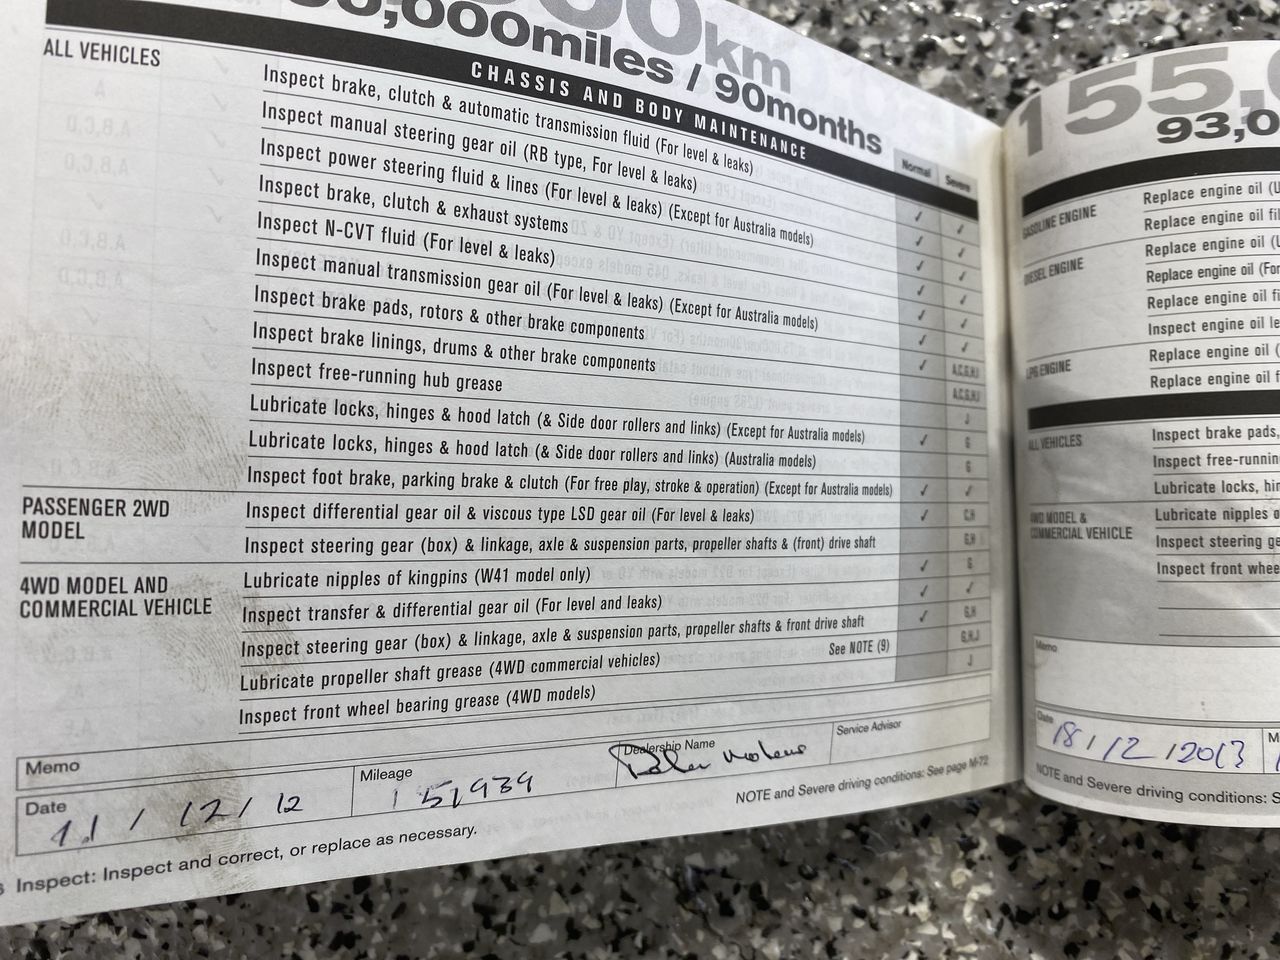 km
0,000miles / 90months
CHASSIS AND BODY MAINTENANCE
Normal Severe
ALL VEHICLES
Inspect brake, clutch & automatic transmission fluid (For level & leaks)
Inspect manual steering gear oil (RB type, For level & leaks)
Inspect power steering fluid & lines (For level & leaks) (Except for Australia models)
Inspect brake, clutch & exhaust systems
Inspect N-CVT fluid (For level & leaks)
Inspect manual transmission gear oil (For level & leaks) (Except for Australia models)
Inspect brake pads, rotors & other brake components
Inspect brake linings, drums & other brake components
Inspect free-running hub grease
Lubricate locks, hinges & hood latch (& Side door rollers and links) (Except for Australia models)
Lubricate locks, hinges & hood latch (& Side door rollers and links) (Australia models)
Inspect foot brake, parking brake & clutch (For free play, stroke & operation) (Except for Australia models)
PASSENGER 2WD
MODEL
Inspect differential gear oil & viscous type LSD gear oil (For level & leaks)
Inspect steering gear (box) & linkage, axle & suspension parts, propeller shafts & (front) drive shaft
4WD MODEL AND
COMMERCIAL VEHICLE
Lubricate nipples of kingpins (W41 model only)
Inspect transfer & differential gear oil (For level and leaks)
Inspect steering gear (box) & linkage, axle & suspension parts, propeller shafts & front drive shaft
Lubricate propeller shaft grease (4WD commercial vehicles) See NOTE (9)
Inspect front wheel bearing grease (4WD models)
Memo
Date 11/12/12
Mileage 151939
Dealership Name
Service Advisor
Inspect: Inspect and correct, or replace as necessary.
NOTE and Severe driving conditions: See page M-72
155,
93,0
GASOLINE ENGINE
Replace engine oil (U
Replace engine oil fil
DIESEL ENGINE
Replace engine oil (L
Replace engine oil (For
Replace engine oil fi
Inspect engine oil le
LPG ENGINE
Replace engine oil (
Replace engine oil f
ALL VEHICLES
Inspect brake pads,
Inspect free-runnin
Lubricate locks, hin
4WD MODEL &
COMMERCIAL VEHICLE
Lubricate nipples o
Inspect steering ge
Inspect front whee
Memo
Date 18/12/2013
NOTE and Severe driving conditions: S